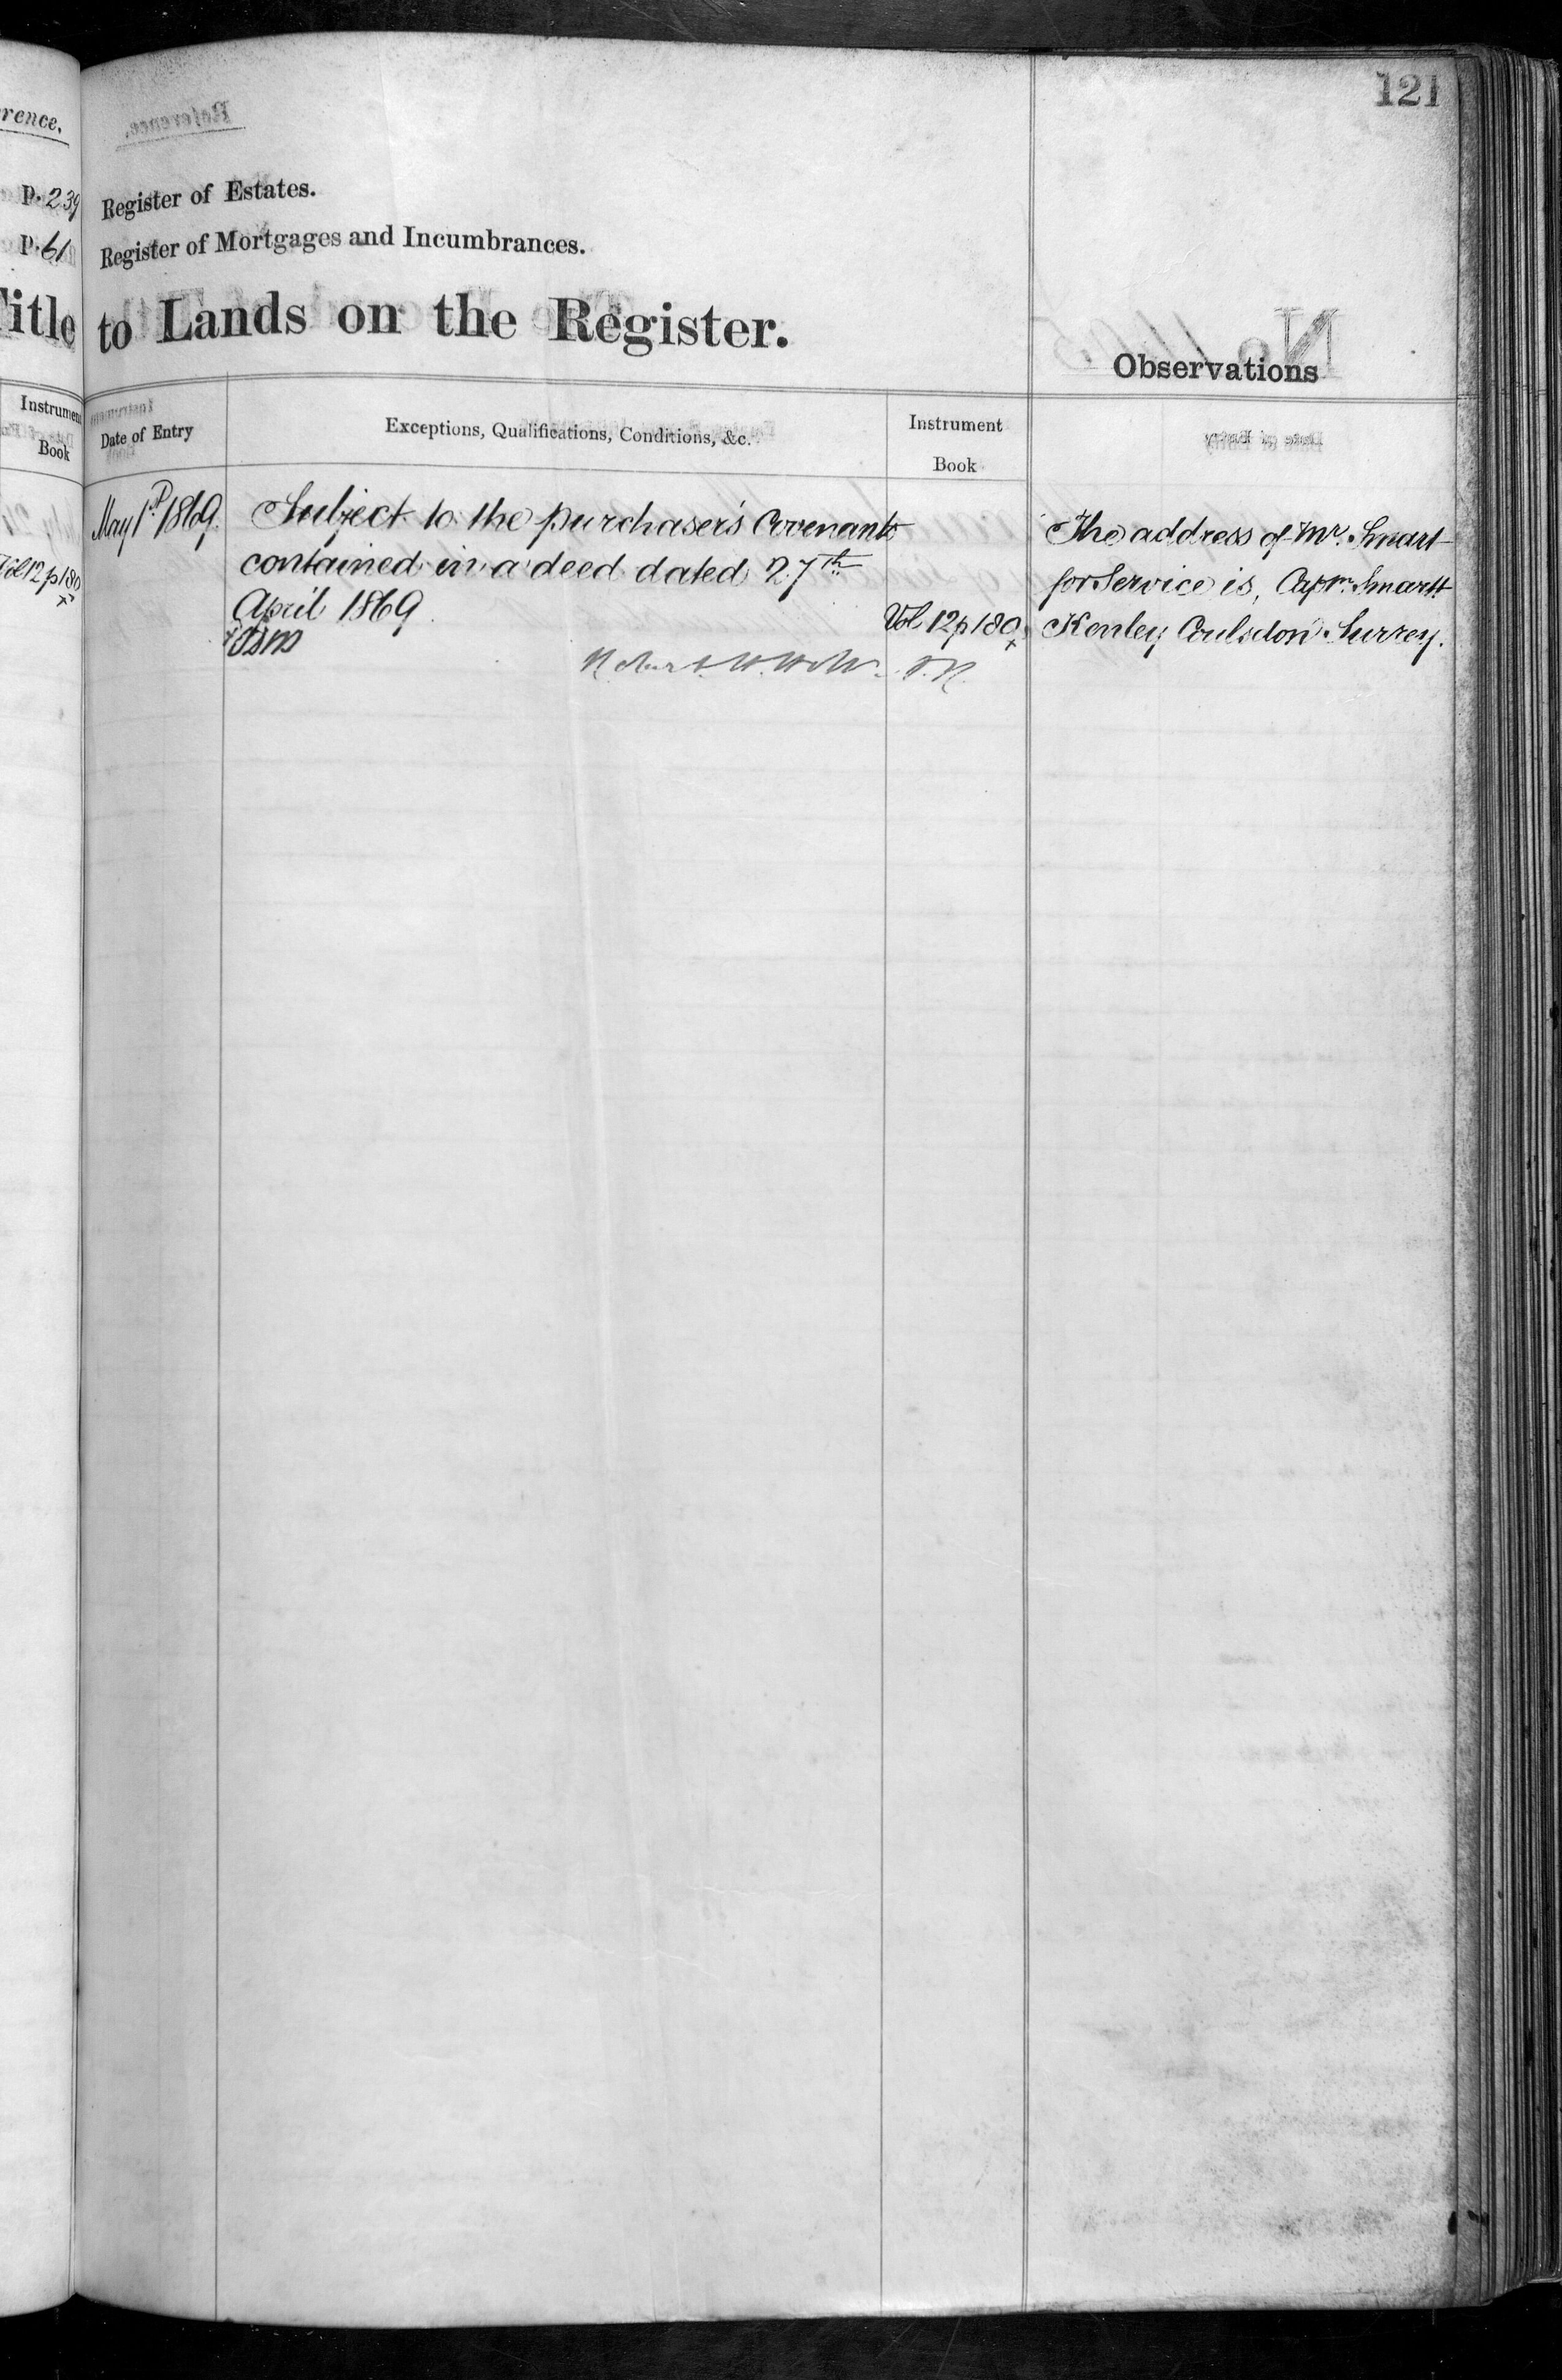 rence.
P. 239
P. 61
Title
Instrument
Book
Vol 12 p 180
121
Register of Estates.
Register of Mortgages and Incumbrances.
to Lands on the Register.
Observations
Date of Entry
Exceptions, Qualifications, Conditions, &c.
Instrument
Book
May 1st 1869.
Subject to the purchaser's Covenants
contained in a deed dated 27th
April 1869
Vol 12 p 180
x
The address of Mr. Smart
for Service is,
Kenley Coulsdon Surrey.